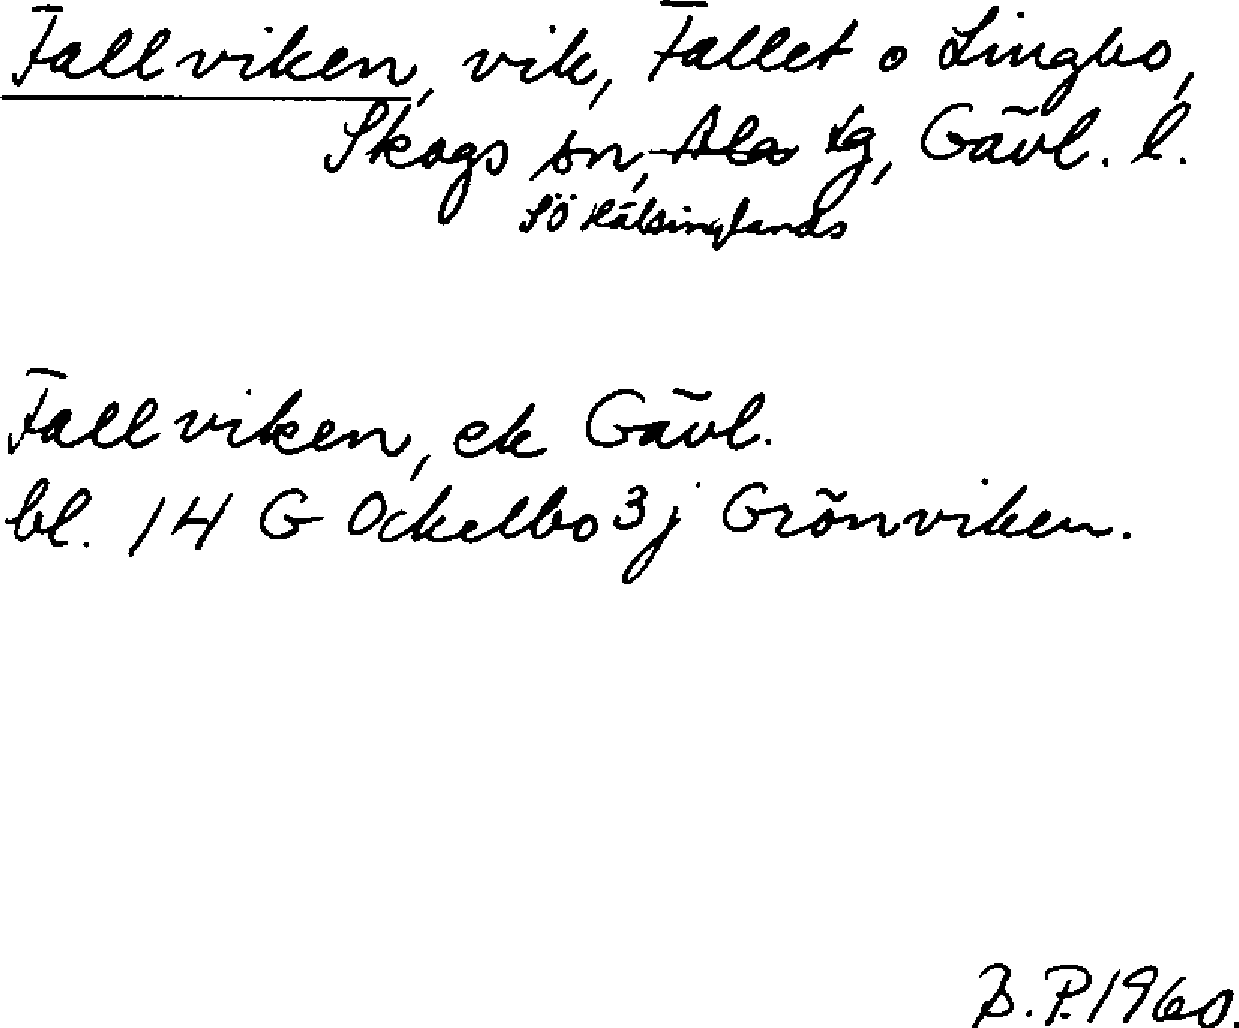 Fallviken, vik, Fallet o Lingbo,
Skogs sn, Ala tg, Gävl. l.
SÖ Hälsinglands
Fallviken, ek Gävl.
bl. 14 G Ockelbo 3j Grönviken.
B.P. 1960.